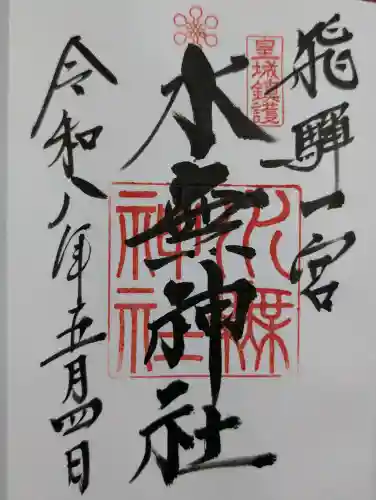 飛騨一宮
皇城鎮護
水無神社
水無神社
令和八年五月四日